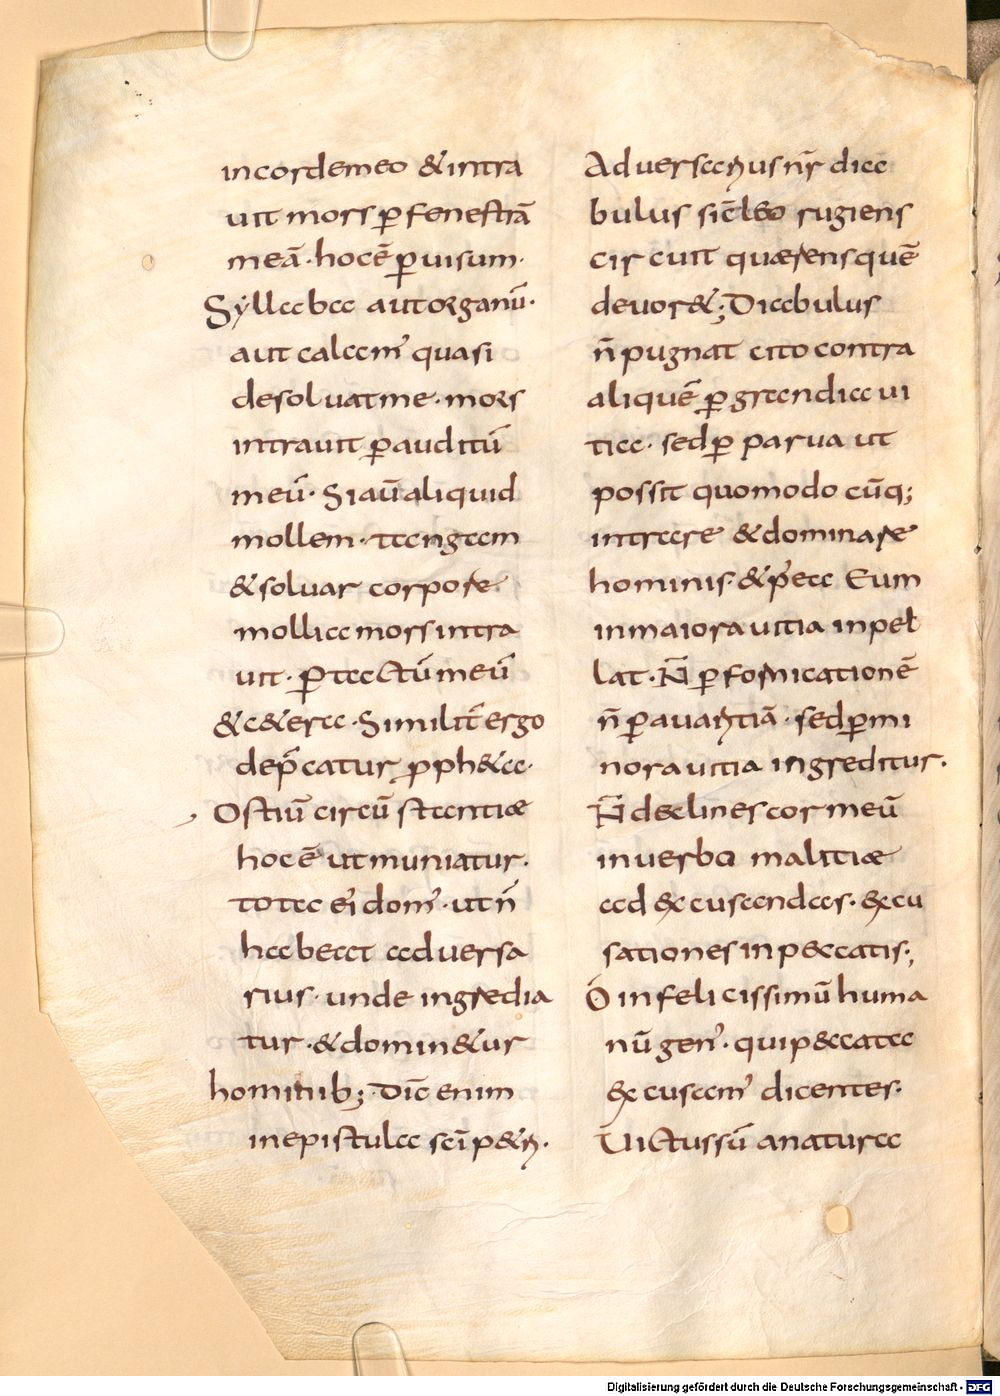 incordemeo &intra
uit mors p̱ fenestrā
meā· hocē p̱ uisum·
Syllaba aut organū·
aut calcem̄ quasi
desoluatme· mors
intrauit p̱ auditū
meū· Siaū aliquid
mollem· tangam
& soluar corpore·
mollia mors intra
uit· p̱ tactū meū
& c&era· Similit̄ ergo
dep̄catur p̱ph&a·
Ostiū circū stantiæ
hocē ut muniatur·
tota ei dom̄· ut n̄
habeat aduersa
rius· unde ingredia
tur· & domin&ur
hominib; Dic̄ enim
inepistula sci p&ri·
Aduersarius nr̄ dia
bulus sic̄ leo rugiens
circuit quærens quē
deuor&; Diabulus
n̄ pugnat cito contra
aliquē p̱ grandia ui
tia· sed p̱ parua ut
possit quomodo cūq;
intrare & dominare
hominis· & p̄ea Eum
inmaiora uitia inpel
lat· N̄ p̱ fornicationē
n̄ p̱ auaritiā· sed p̱ mi
nora uitia ingreditur·
N̄ declines cor meū
inuerbo malitiæ
ad excusandas· excu
sationes in peccatis·;
O infelicissimū huma
nū gen̄· qui p&cata
excusam̄ dicentes·
Uictus sū a natura
Digitalisierung gefördert durch die Deutsche Forschungsgemeinschaft - DFG